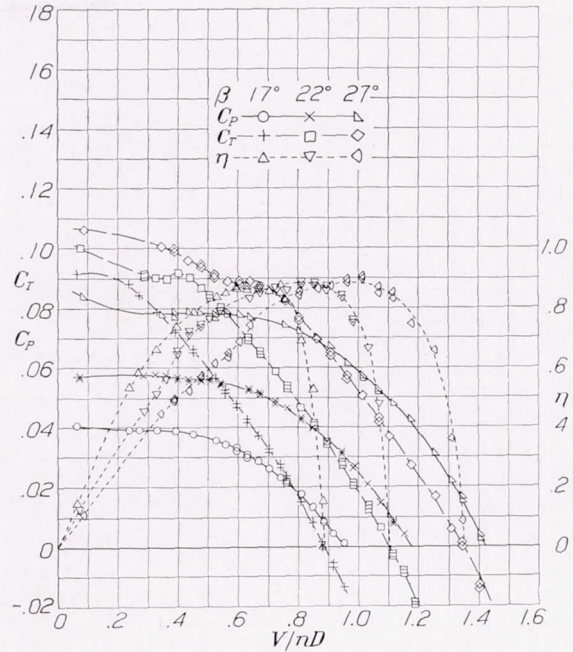 .18
.16
.14
.12
.10
C_T
.08
C_P
.06
.04
.02
0
-.02
β 17° 22° 27°
C_P
C_T
η
1.0
.8
.6
η
.4
.2
0
0 .2 .4 .6 .8 1.0 1.2 1.4 1.6
V/nD